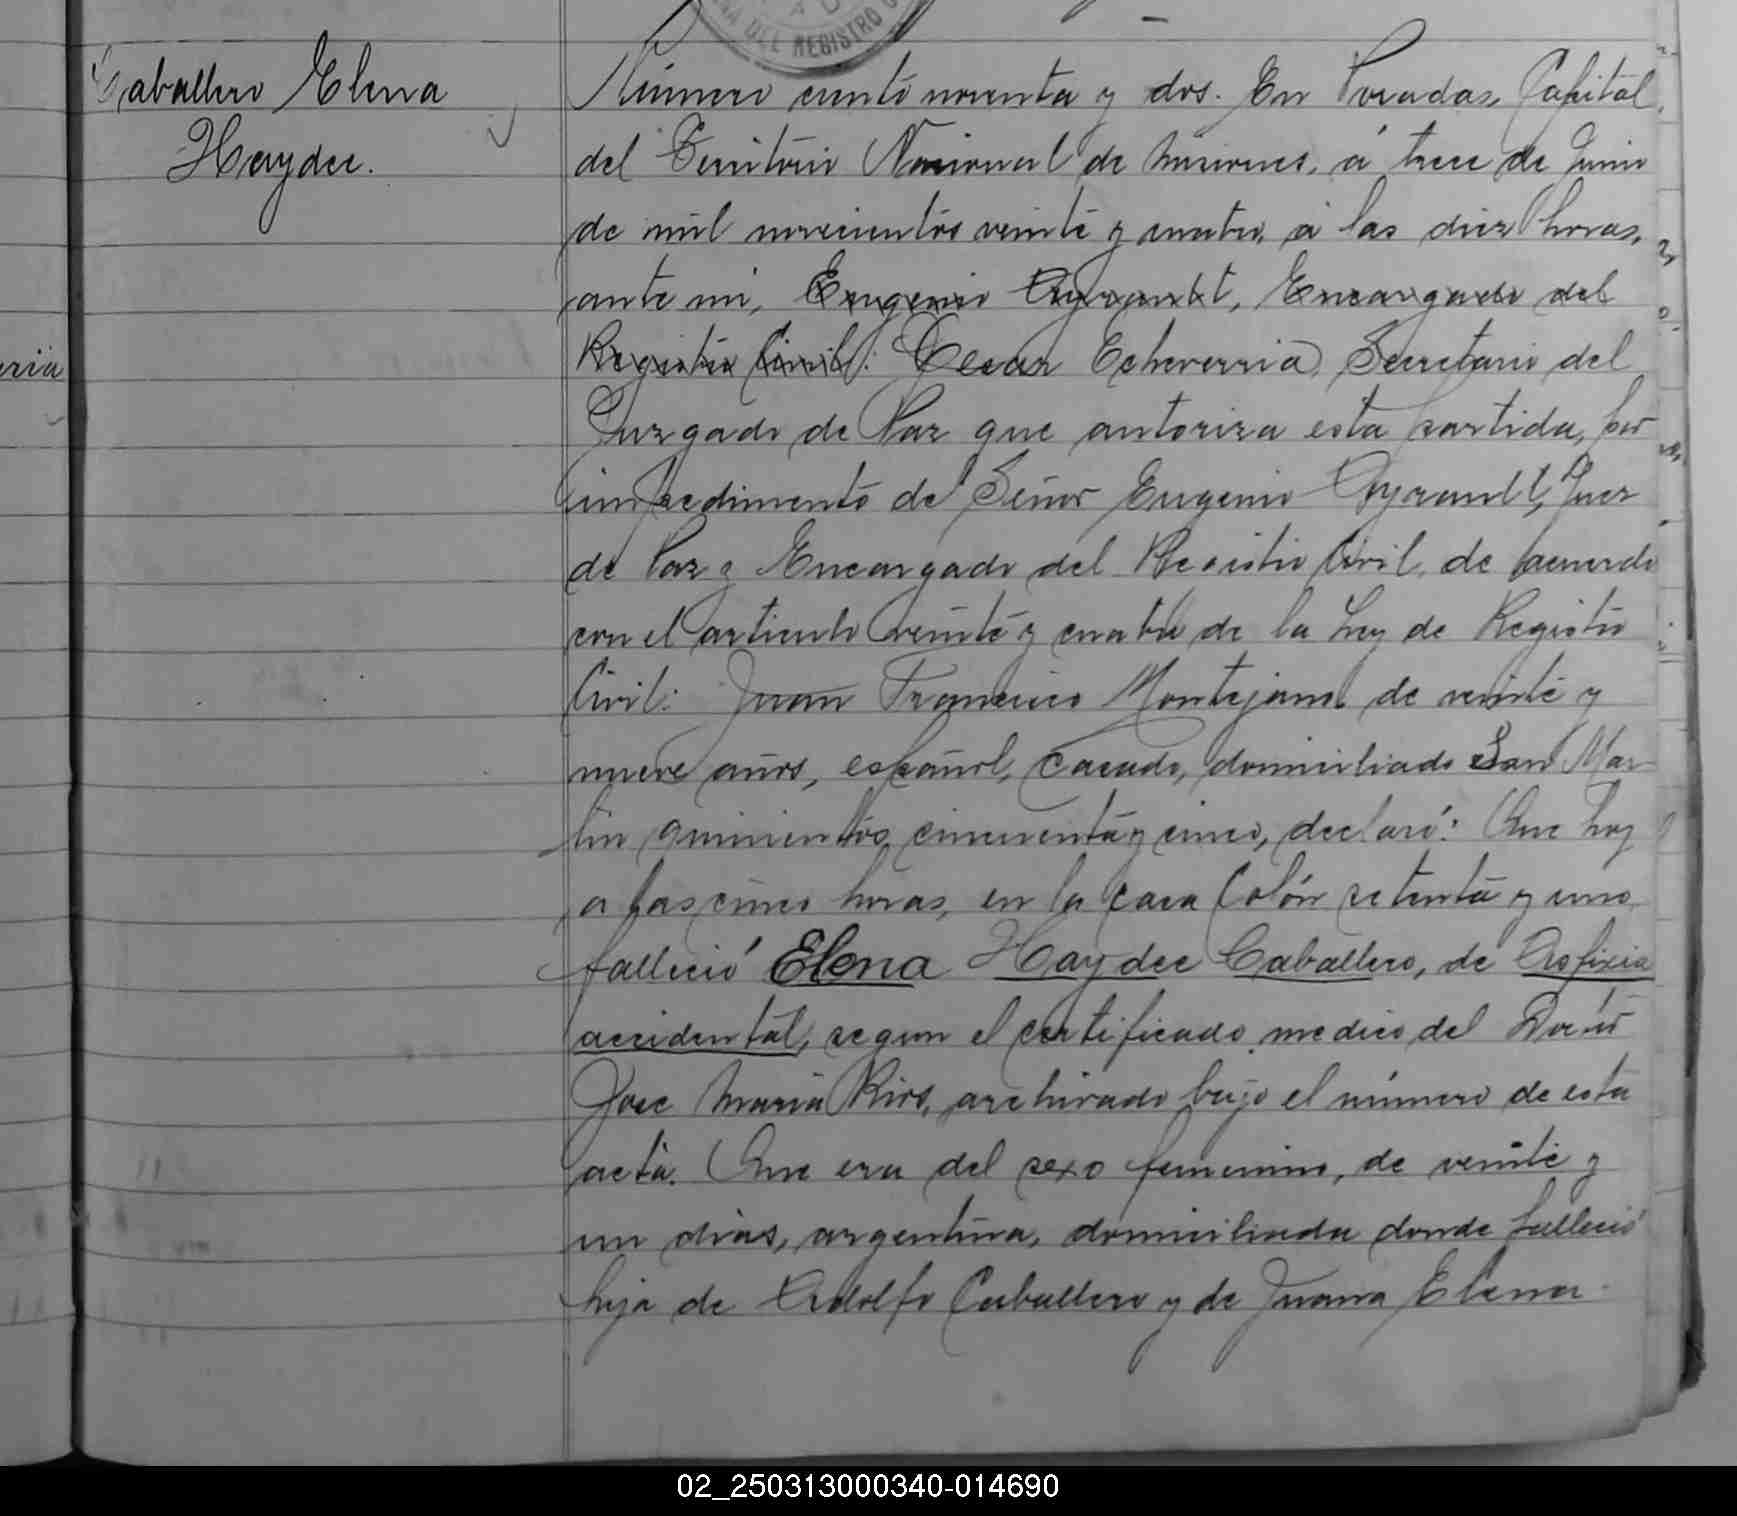 DEL REGISTRO
Caballero Elena
Haydee.
Número ciento noventa y dos. En Posadas, Capital
del Territorio Nacional de Misiones, á trece de Junio
de mil novecientos veinte y cuatro, á las diez horas,
ante mi, Eugenio Ayrault, Encargado del
Registro Civil: Cesar Echeverria, Secretario del
Juzgado de Paz que autoriza esta partida, por
impedimento de Señor Eugenio Ayrault, Juez
de Paz y Encargado del Registro Civil, de acuerdo
con el articulo veinte y cuatro de la Ley de Registro
Civil: Juan Francisco Montejano de veinte y
nueve años, español, casado, domiciliado San Mar
tin quinientos cincuenta y cinco, declaró: Que hoy
a las cinco horas, en la casa Colón setenta y uno
falleció Elena Haydee Caballero, de Asfixia
accidental, segun el certificado medico del Doctor
Jose Maria Rios, archivado bajo el número de esta
acta. Que era del sexo femenino, de veinte y
un dias, argentina, domiciliada donde falleció
hija de Adolfo Caballero y de Juana Elena
02_250313000340-014690